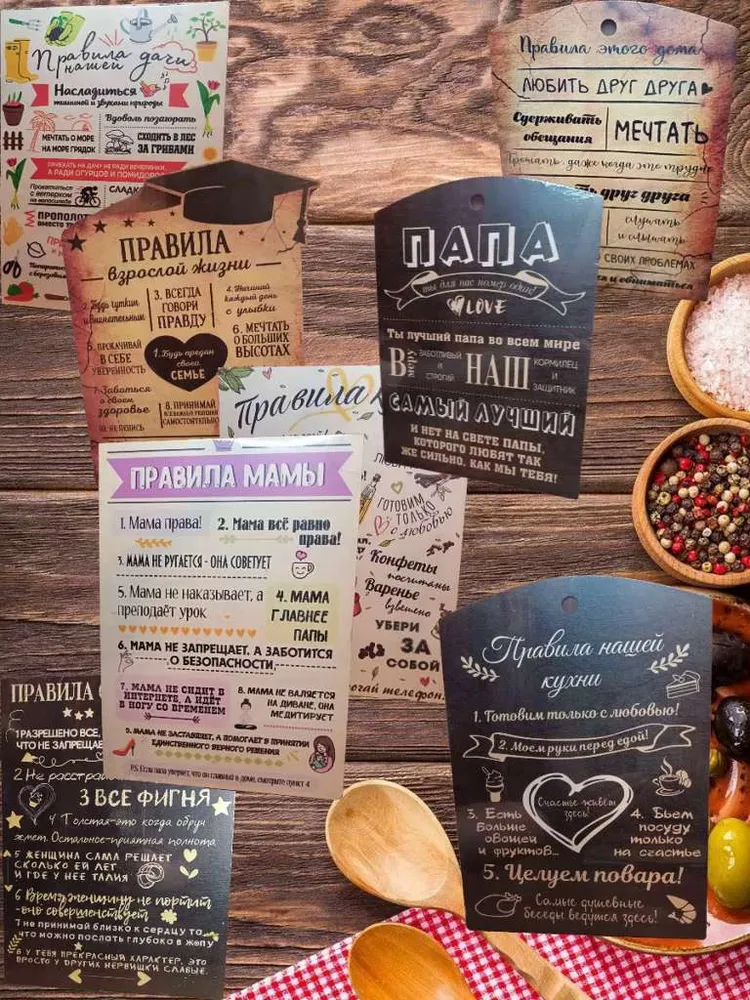 Правила
нашей дачи
Насладиться
тишиной и звуками природы
Вдоволь позагорать
МЕЧТАТЬ О МОРЕ
НА МОРЕ ГРЯДОК
СХОДИТЬ В ЛЕС
ЗА ГРИБАМИ
ПРИЕХАТЬ НА ДАЧУ НЕ РАДИ ВЕЧЕРИНКИ,
А РАДИ ОГУРЦОВ И ПОМИДОРОВ
Прокатиться
с ветерком
на велосипеде
СЛАДКО
ПРОПОЛОТЬ
ВМЕСТО
Правила этого дома
ЛЮБИТЬ ДРУГ ДРУГА
Сдерживать
обещания
МЕЧТАТЬ
Прощать, даже когда это трудно
друг друга
слушать
и слышать
СВОИХ ПРОБЛЕМАХ
и обниматься
ПРАВИЛА
взрослой жизни
2. Будь чутким
и внимательным
3. ВСЕГДА
ГОВОРИ
ПРАВДУ
4. Начинай
каждый день
с улыбки
5. ПРОКАЧИВАЙ
В СЕБЕ
УВЕРЕННОСТЬ
1. Будь предан
своей
СЕМЬЕ
6. МЕЧТАТЬ
О БОЛЬШИХ
ВЫСОТАХ
7. Заботься
о своем
здоровье
8. ПРИНИМАЙ
САМОСТОЯТЕЛЬНО
ПАПА
ты для нас номер один!
LOVE
Ты лучший папа во всем мире
В меру
ЗАБОТЛИВЫЙ
И
СТРОГИЙ
НАШ
КОРМИЛЕЦ
И
ЗАЩИТНИК
САМЫЙ ЛУЧШИЙ
И НЕТ НА СВЕТЕ ПАПЫ,
КОТОРОГО ЛЮБЯТ ТАК
ЖЕ СИЛЬНО, КАК МЫ ТЕБЯ!
Правила
ГОТОВИМ
ТОЛЬКО
с любовью
Конфеты
посчитаны
Варенье
взвешено
УБЕРИ
ЗА
СОБОЙ
телефон
ПРАВИЛА МАМЫ
1. Мама права!
2. Мама всё равно
права!
3. МАМА НЕ РУГАЕТСЯ - ОНА СОВЕТУЕТ
5. Мама не наказывает, а
преподаёт урок
4. МАМА
ГЛАВНЕЕ
ПАПЫ
6. МАМА НЕ ЗАПРЕЩАЕТ, А ЗАБОТИТСЯ
О БЕЗОПАСНОСТИ
7. МАМА НЕ СИДИТ В
ИНТЕРНЕТЕ, А ИДЁТ
В НОГУ СО ВРЕМЕНЕМ
8. МАМА НЕ ВАЛЯЕТСЯ
НА ДИВАНЕ, ОНА
МЕДИТИРУЕТ
9. МАМА НЕ ЗАСТАВЛЯЕТ, А ПОМОГАЕТ В ПРИНЯТИИ
ЕДИНСТВЕННОГО ВЕРНОГО РЕШЕНИЯ
P.S. Если папа уверяет, что он главный в доме, смотрите пункт 4
ПРАВИЛА
1 РАЗРЕШЕНО ВСЕ,
ЧТО НЕ ЗАПРЕЩАЕ
2 Не расстра
3 ВСЕ ФИГНЯ
4 Толстая-это когда обруч
жмет. Остальное-приятная полнота
5 ЖЕНЩИНА САМА РЕШАЕТ
СКОЛЬКО ЕЙ ЛЕТ
И ГДЕ У НЕЕ ТАЛИЯ
6 Время женщину не портит
-оно совершенствует
7 не принимай близко к сердцу то,
что можно послать глубоко в жопу
8 У ТЕБЯ ПРЕКРАСНЫЙ ХАРАКТЕР, ЭТО
ПРОСТО У ДРУГИХ НЕРВИШКИ СЛАБЫЕ.
Правила нашей
кухни
1. Готовим только с любовью!
2. Моем руки перед едой!
Счастье живёт
здесь!
3. Есть
больше
овощей
и фруктов...
4. Бьем
посуду
только
на счастье
5. Целуем повара!
Самые душевные
беседы ведутся здесь!